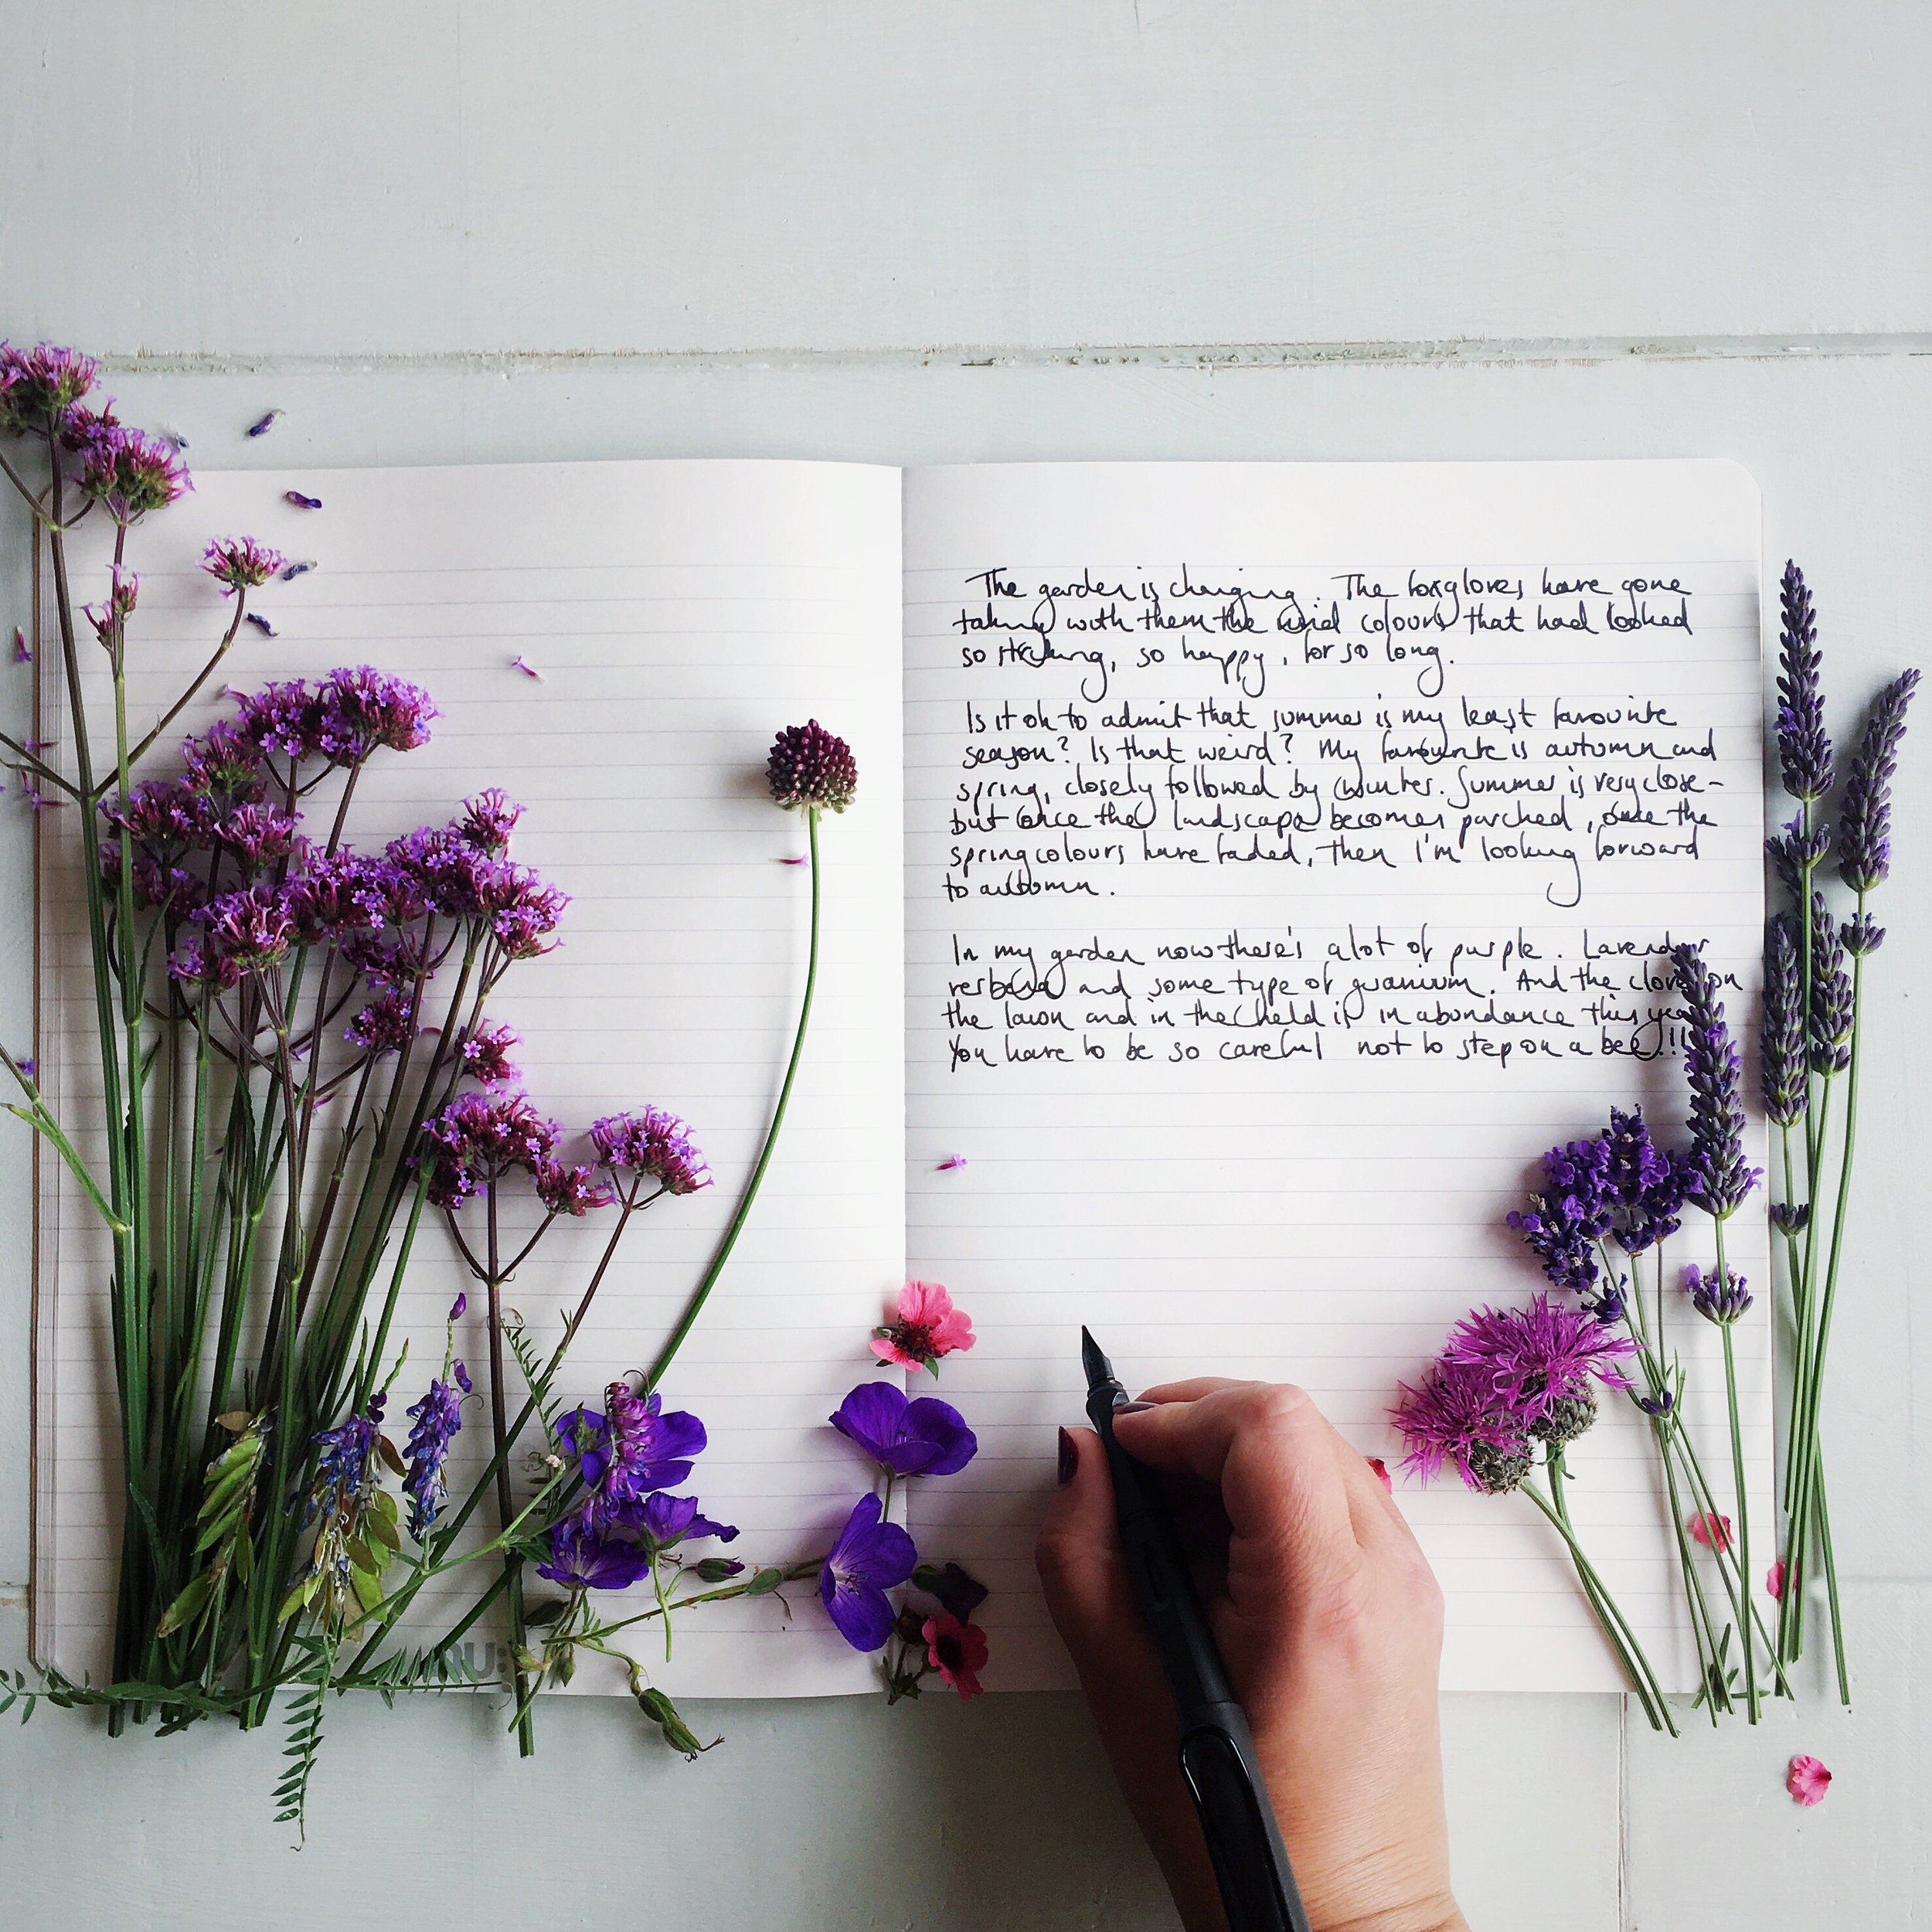 The garden is changing. The foxgloves have gone
taking with them the vivid colours that had looked
so striking, so happy, for so long.
Is it ok to admit that summer is my least favourite
season? Is that weird? My favourite is autumn and
spring, closely followed by winter. Summer is very close -
but once the landscape becomes parched, once the
spring colours have faded, then I'm looking forward
to autumn.
In my garden now there's a lot of purple. Lavender
verbena and some type of geranium. And the clover on
the lawn and in the field is in abundance this year
You have to be so careful not to step on a bee!!!